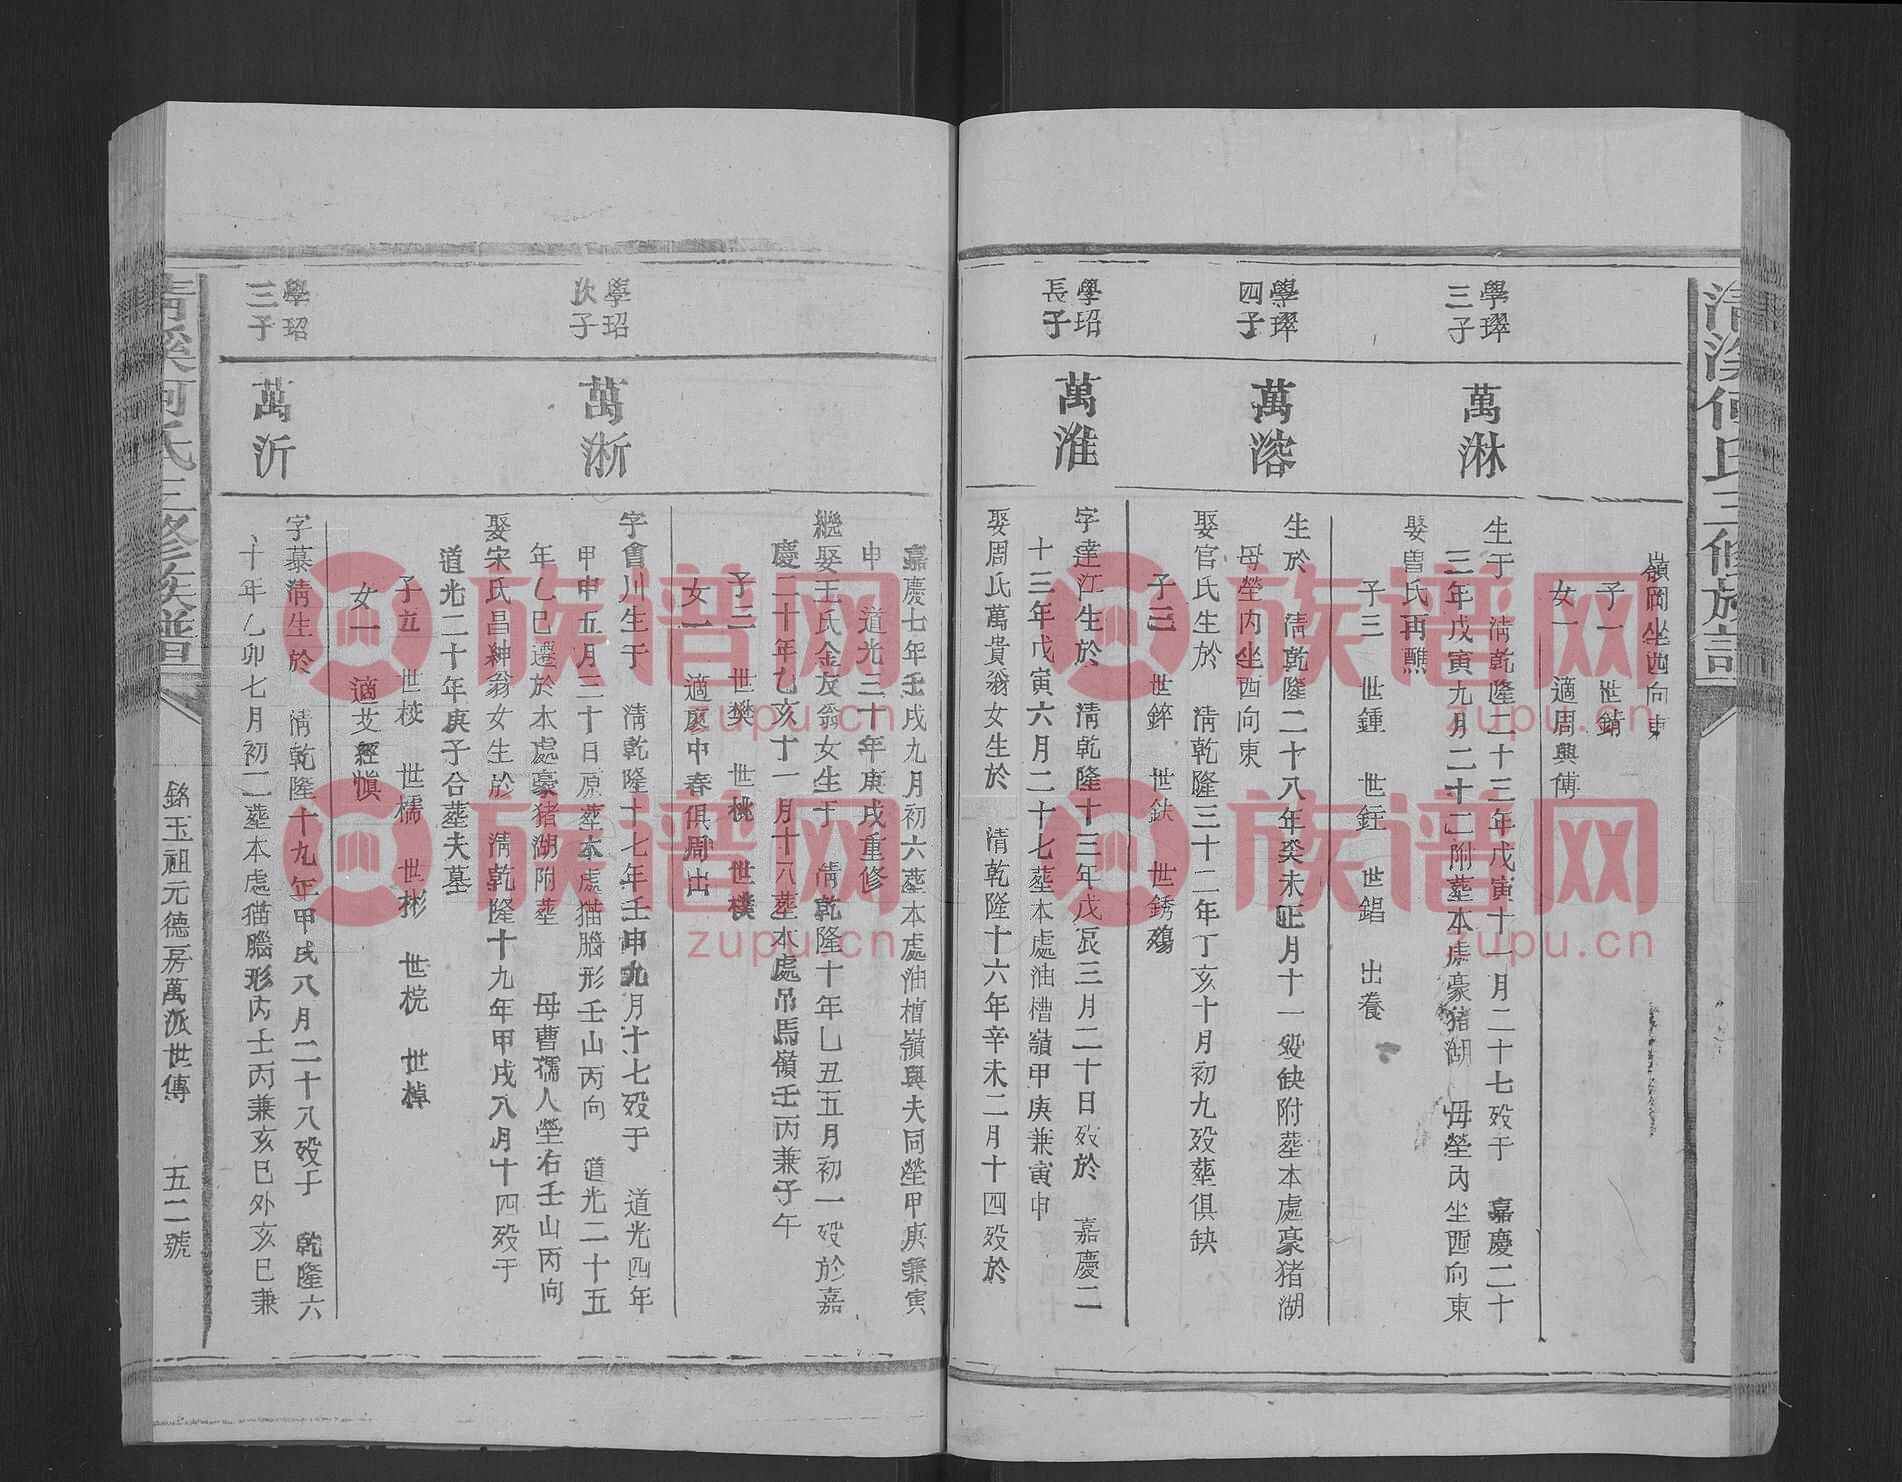 清溪何氏三修族譜
嶺岡坐西向東
子一 世錆
女一 適周興傳
學璻
三子
萬淋
生于 清乾隆二十三年戊寅十一月二十七歿于 嘉慶二十
三年戊寅九月二十二附塟本處豪猪湖 母塋內坐西向東
娶曾氏再醮
子三 世鍾 世鉒 世錩 出養
學璻
四子
萬溶
生於 清乾隆二十八年癸未正月十一歿缺附塟本處豪猪湖
母塋內坐西向東
娶官氏生於 清乾隆三十二年丁亥十月初九歿塟俱缺
子三 世錊 世鈌 世銹殤
學玿
長子
萬淮
字達江生於 清乾隆十三年戊辰三月二十日歿於 嘉慶二
十三年戊寅六月二十七塟本處油槽嶺甲庚兼寅申
娶周氏萬貴翁女生於 清乾隆十六年辛未二月十四歿於
嘉慶七年壬戌九月初六塟本處油槽嶺與夫同塋甲庚兼寅
申 道光三十年庚戌重修
繼娶王氏金友翁女生于 清乾隆十年乙丑五月初一歿於嘉
慶二十年乙亥十一月十八塟本處吊馬嶺壬丙兼子午
子三 世樊 世桃 世樸
女一 適廖中春俱周出
學玿
次子
萬淅
字會川生于 清乾隆十七年壬申九月十七歿于 道光四年
甲申五月三十日原塟本處猫腦形壬山丙向 道光二十五
年乙巳遷於本處豪猪湖附塟 母曹孺人塋右壬山丙向
娶宋氏昌紳翁女生於 清乾隆十九年甲戌八月十四歿于
道光二十年庚子合塟夫墓
子五 世椄 世檽 世彬 世梡 世棹
女一 適艾經愼
學玿
三子
萬沂
字慕清生於 清乾隆十九年甲戌八月二十八歿于 乾隆六
十年乙卯七月初二塟本處猫腦形內壬丙兼亥巳外亥巳兼
清溪何氏三修族譜
銘玉祖元德房萬派世傳 五二號
族谱网
zupu.cn
族谱网
zupu.cn
族谱网
zupu.cn
族谱网
zupu.cn